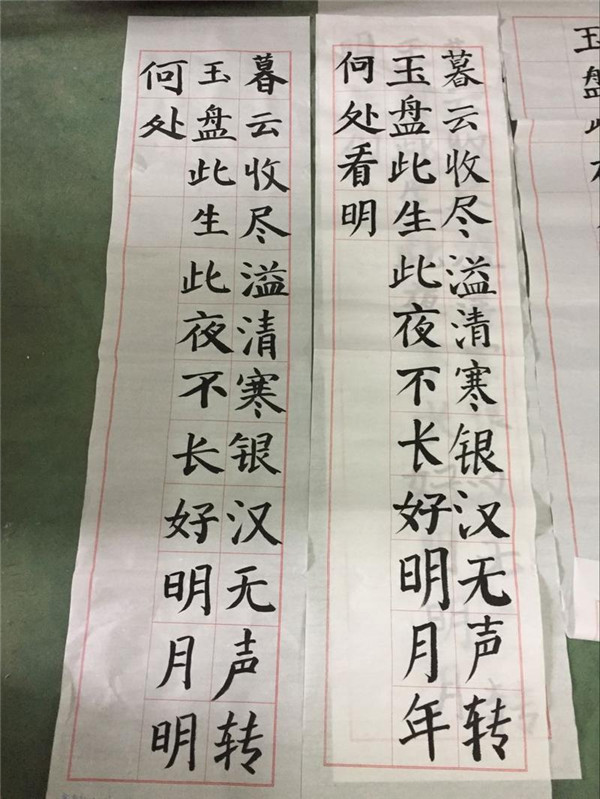 玉盘
暮云收尽溢清寒银汉无声转
玉盘此生此夜不长好明月年
何处看明
暮云收尽溢清寒银汉无声转
玉盘此生此夜不长好明月明
何处